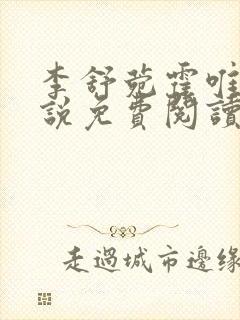 李舒菀霆唯
說免費閱讀
走過城市邊緣